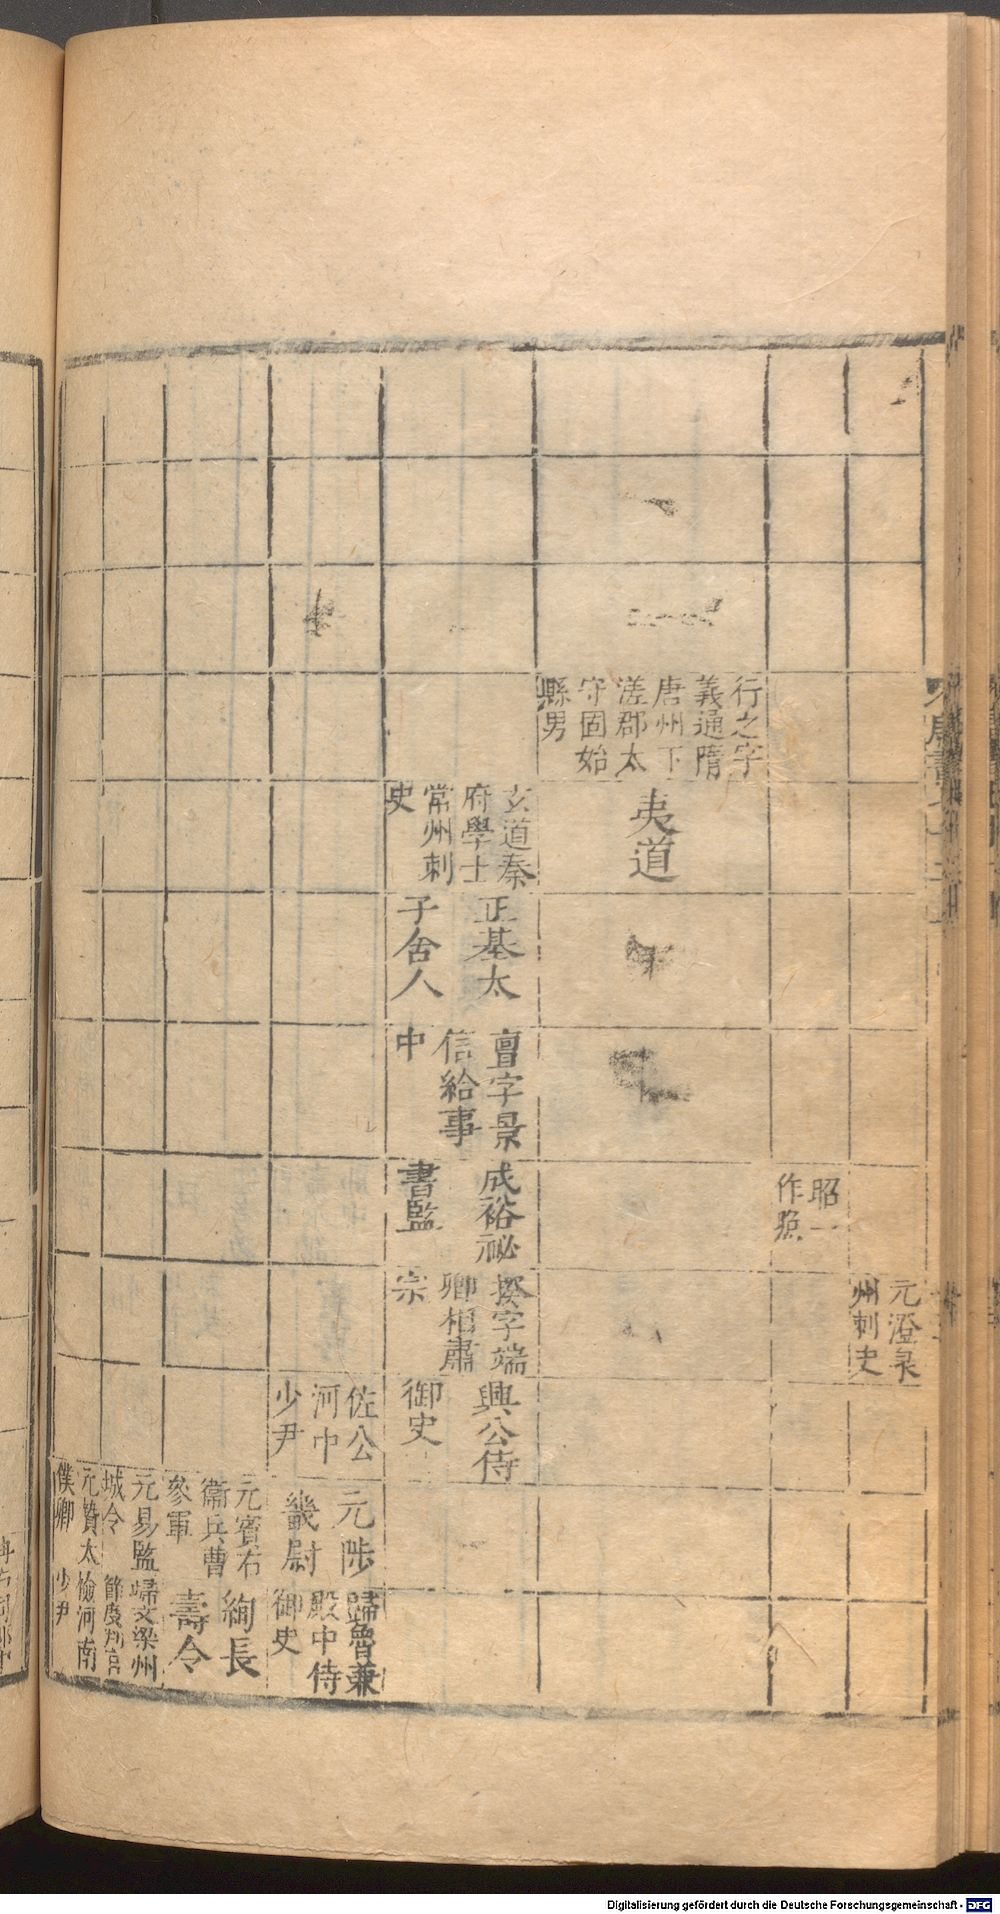 元澄泉
州刺史
昭一
作㷖
行之字
義通隋
唐州下
溠郡太
守固始
縣男
夷道
玄道秦
府學士
常州刺
史
正基太
子舍人
亶字景
信給事
中
成裕祕
書監
揆字端
卿相肅
宗
興公侍
御史
佐公
河中
少尹
元陟
畿尉
歸魯兼
殿中侍
御史
元賓右
衞兵曹
參軍
絢長
壽令
元易監
城令
歸文梁州
節度判官
元贊太
僕卿
愉河南
少尹
Digitalisierung gefördert durch die Deutsche Forschungsgemeinschaft - DFG